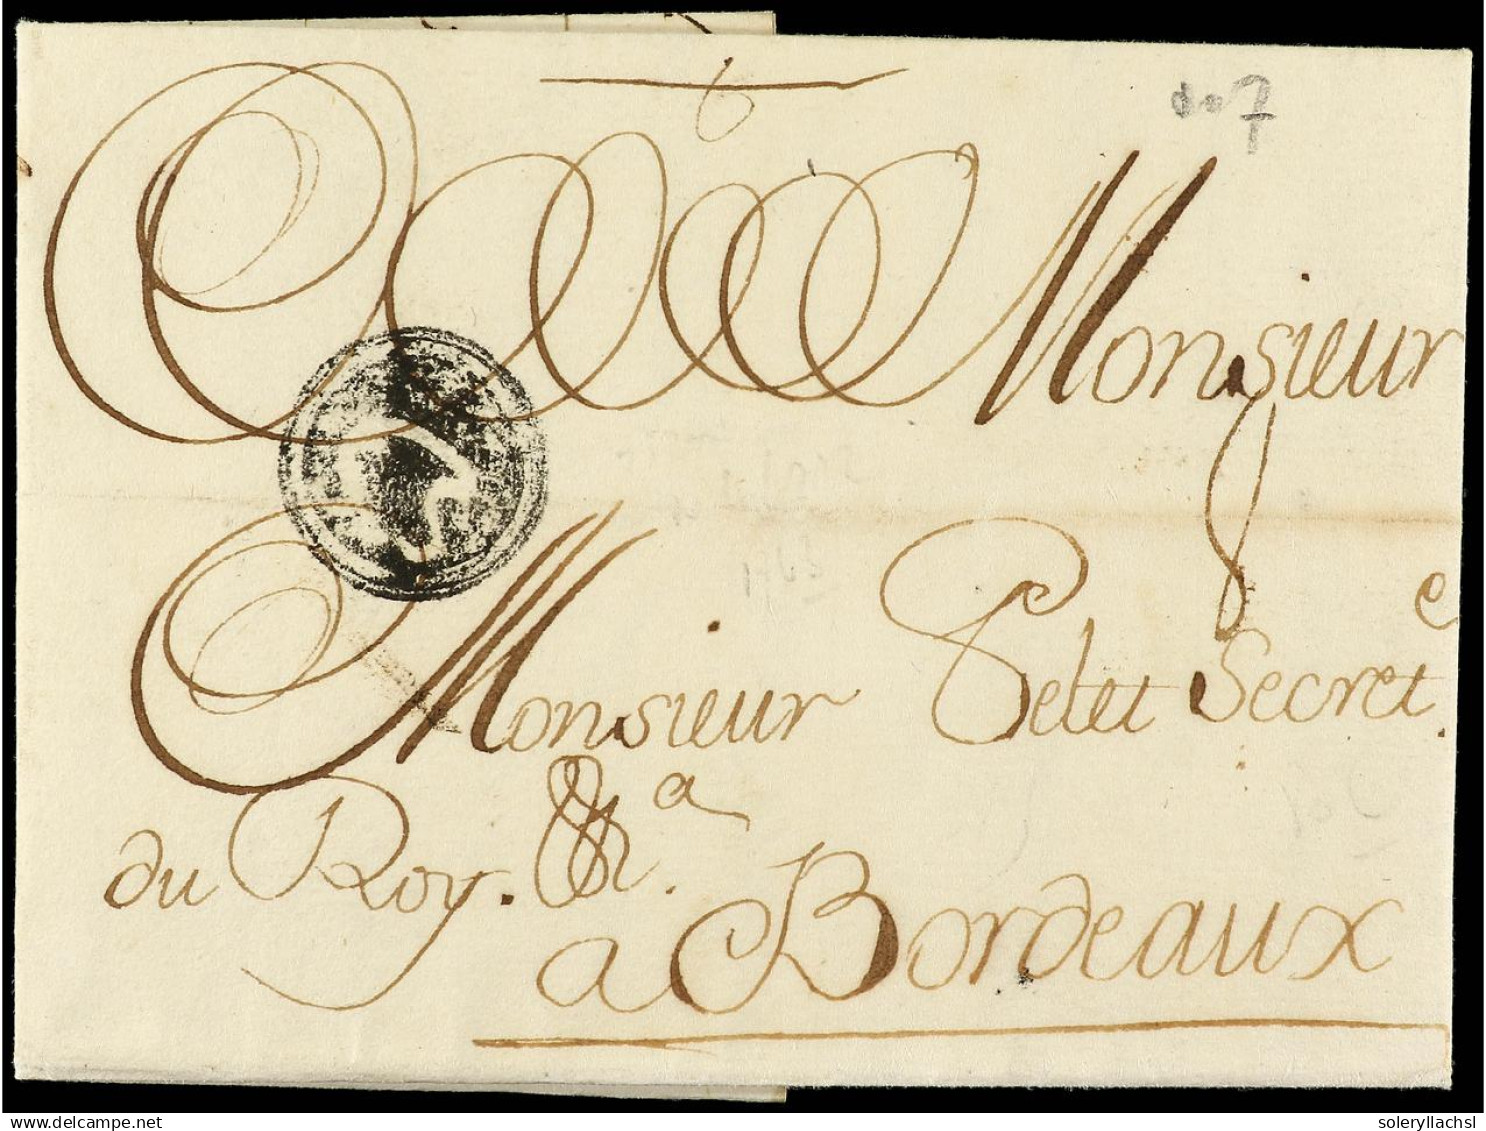 6
7
Monsieur
Monsieur Petet Secret.e
du Roy. &a.
a Bordeaux
delcampe.net
soleryllachsl